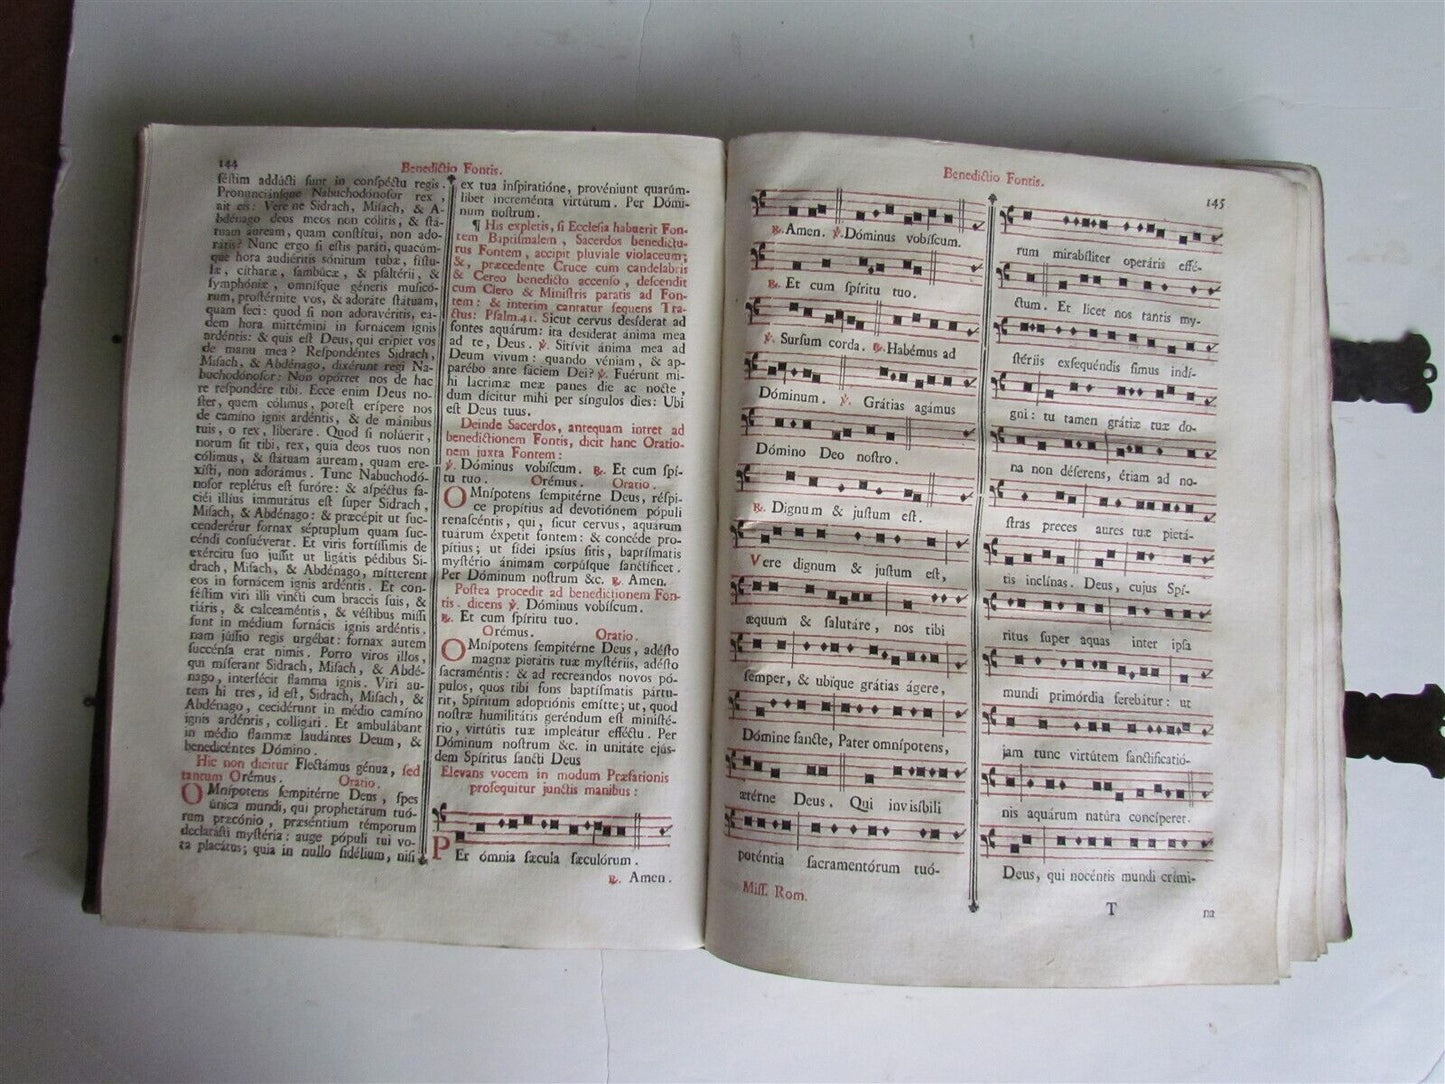 144
Benedictio Fontis.
féstim addúcti sunt in conspéctu regis.
Pronunciánsque Nabuchodónosor rex,
ait eis: Vere ne Sidrach, Misach, & A-
bdénago deos meos non cólitis, & stá-
tuam áuream, quam constítui, non ado-
rátis? Nunc ergo si estis paráti, quacúm-
que hora audiéritis sónitum tubæ, fístu-
læ, cítharæ, sambúcæ, & psaltérii, &
symphóniæ, omnísque géneris musicó-
rum, prostérnite vos, & adoráte státuam,
quam feci: quod si non adoravéritis, eá-
dem hora mittémini in fornácem ignis
ardéntis: & quis est Deus, qui erípiet vos
de manu mea? Respondéntes Sidrach,
Misach, & Abdénago, dixérunt regi Na-
buchodónosor: Non opórtet nos de hac
re respondére tibi. Ecce enim Deus no-
ster, quem cólimus, potest erípere nos
de camíno ignis ardéntis, & de mánibus
tuis, o rex, liberáre. Quod si nolúerit,
notum sit tibi, rex, quia deos tuos non
cólimus, & státuam áuream, quam ere-
xísti, non adorámus. Tunc Nabuchodó-
nosor replétus est furóre: & aspéctus fa-
ciéi illíus immutátus est super Sidrach,
Misach, & Abdénago: & præcépit ut suc-
cenderétur fornax séptuplum quam suc-
céndi consuéverat. Et viris fortíssimis de
exércitu suo jussit ut ligátis pédibus Si-
drach, Misach, & Abdénago, mítterent
eos in fornácem ignis ardéntis. Et con-
féstim viri illi vincti cum braccis suis, &
tiáris, & calceaméntis, & véstibus missi
sunt in médium fornácis ignis ardéntis.
nam jússio regis urgébat: fornax autem
succénsa erat nimis. Porro viros illos,
qui míserant Sidrach, Misach, & Abdé-
nago, interfécit flamma ignis. Viri au-
tem hi tres, id est, Sidrach, Misach, &
Abdénago, cecidérunt in médio camíno
ignis ardéntis, colligáti. Et ambulábant
in médio flammæ laudántes Deum, &
benedicéntes Dómino.
Hic non dicitur Flectámus génua, sed
tantum Orémus. Oratio.
OMnípotens sempitérne Deus, spes
única mundi, qui prophetárum tuó-
rum præcónio, præséntium témporum
declarásti mystéria: auge pópuli tui vo-
ta placátus; quia in nullo fidélium, nisi
ex tua inspiratióne, provéniunt quarúm-
libet increménta virtútum. Per Dómi-
num nostrum.
¶ His expletis, si Ecclesia habuerit Fon-
tem Baptismalem, Sacerdos benedictu-
rus Fontem, accipit pluviale violaceum;
&, præcedente Cruce cum candelabris
& Cereo benedicto accenso, descendit
cum Clero & Ministris paratis ad Fon-
tem: & interim cantatur sequens Tra-
ctus: Psalm.41. Sicut cervus desíderat ad
fontes aquárum: ita desíderat ánima mea
ad te, Deus. ℣. Sitívit ánima mea ad
Deum vivum: quando véniam, & ap-
parébo ante fáciem Dei? ℣. Fuérunt mi-
hi lacrimæ meæ panes die ac nocte,
dum dícitur mihi per síngulos dies: Ubi
est Deus tuus.
Deinde Sacerdos, antequam intret ad
benedictionem Fontis, dicit hanc Oratio-
nem juxta Fontem:
℣. Dóminus vobíscum. ℟. Et cum spí-
tu tuo. Orémus. Oratio.
OMnípotens sempitérne Deus, réspi-
ce propítius ad devotiónem pópuli
renascéntis, qui, sicut cervus, aquárum
tuárum éxpetit fontem: & concéde pro-
pítius; ut fídei ipsíus sitis, baptísmatis
mystério ánimam corpúsque sanctíficet.
Per Dóminum nostrum &c. ℟. Amen.
Postea procedit ad benedictionem Fon-
tis. dicens ℣. Dóminus vobíscum.
℟. Et cum spíritu tuo.
Orémus. Oratio.
OMnípotens sempitérne Deus, adésto
magnæ pietátis tuæ mystériis, adésto
sacraméntis: & ad recreándos novos pó-
pulos, quos tibi fons baptísmatis pártu-
rit, Spíritum adoptiónis emítte; ut, quod
nostræ humilitátis geréndum est ministé-
rio, virtútis tuæ impleátur efféctu. Per
Dóminum nostrum &c. in unitáte ejús-
dem Spíritus sancti Deus
Elevans vocem in modum Præfationis
prosequitur junctis manibus:
PEr ómnia sæcula sæculórum.
℟. Amen.
Benedictio Fontis.
145
℟. Amen. ℣. Dóminus vobíscum.
℟. Et cum spíritu tuo.
℣. Sursum corda. ℟. Habémus ad
Dóminum. ℣. Grátias agámus
Dómino Deo nostro.
℟. Dignum & justum est.
Vere dignum & justum est,
æquum & salutáre, nos tibi
semper, & ubíque grátias ágere,
Dómine sancte, Pater omnípotens,
ætérne Deus. Qui invisíbili
poténtia sacramentórum tuó-
Miss. Rom.
rum mirabíliter operáris effé-
ctum. Et licet nos tantis my-
stériis exsequéndis simus indí-
gni: tu tamen grátiæ tuæ do-
na non déserens, étiam ad no-
stras preces aures tuæ pietá-
tis inclínas. Deus, cujus Spí-
ritus super aquas inter ipsa
mundi primórdia ferebátur: ut
jam tunc virtútem sanctificatió-
nis aquárum natúra concíperet.
Deus, qui nocéntis mundi crími-
T
na